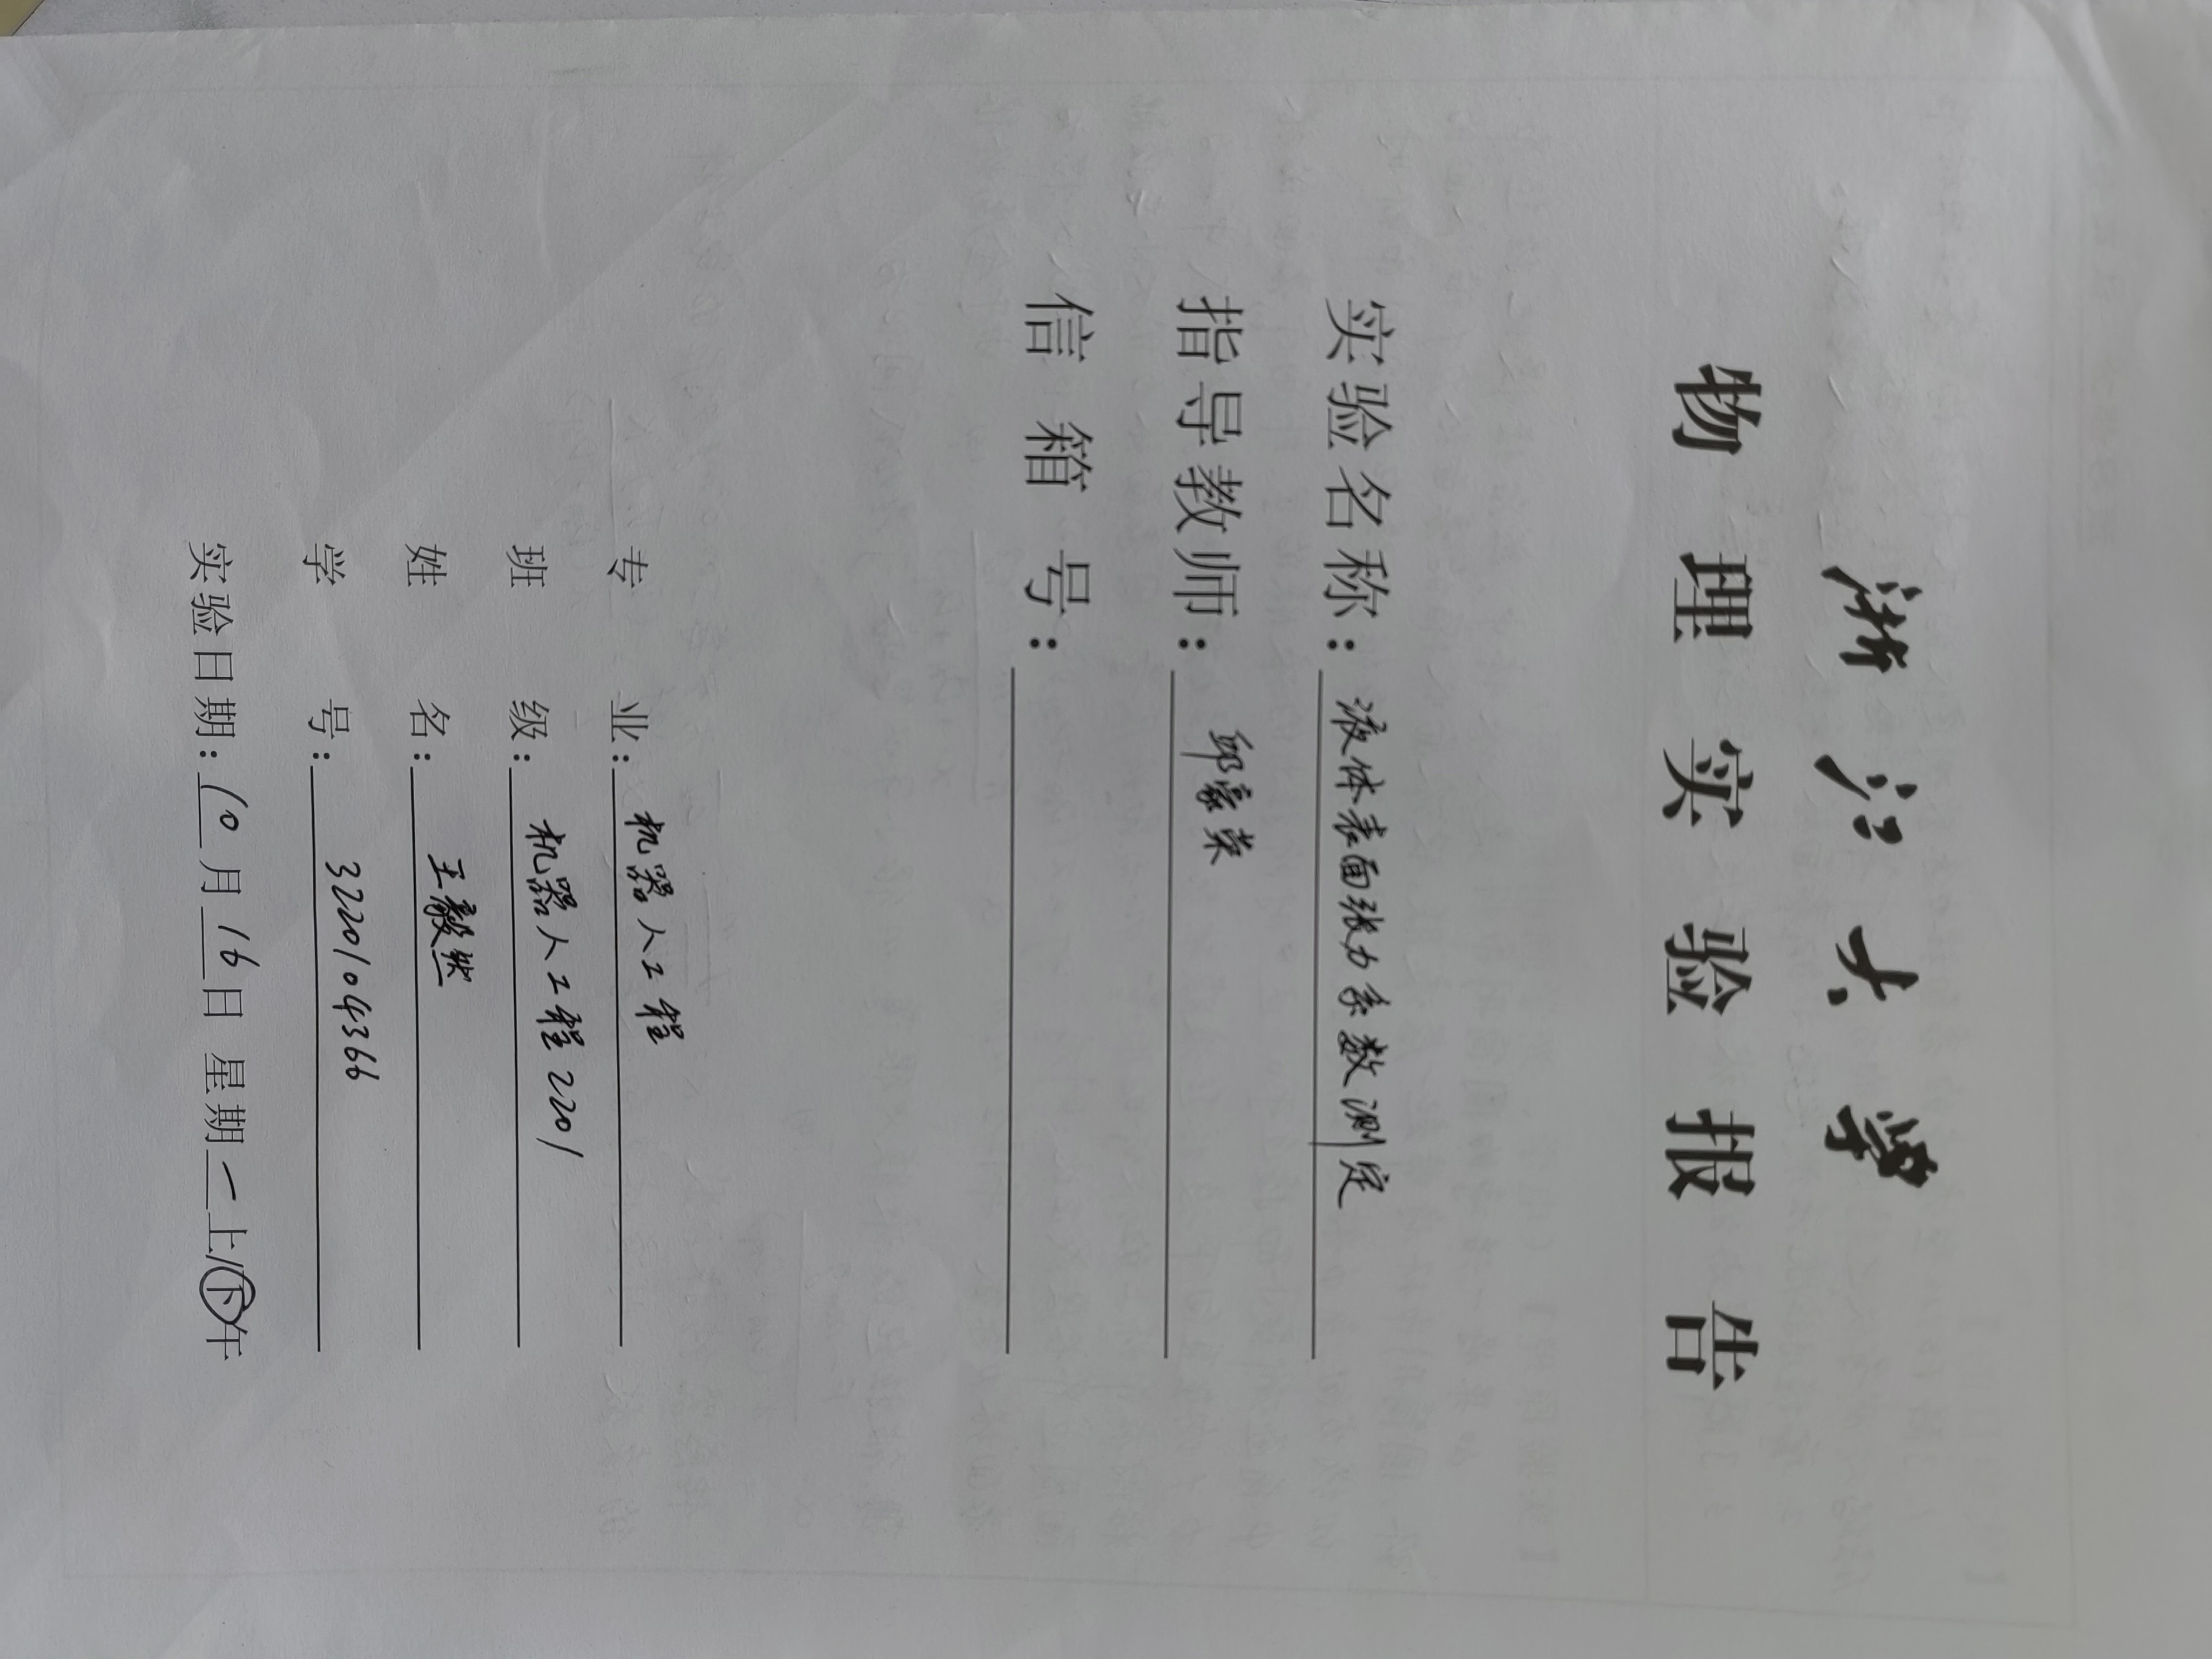 浙江大学
物理实验报告
实验名称：液体表面张力系数测定
指导教师：邱豪荣
信箱号：
专业：机器人工程
班级：机器人工程2201
姓名：王毅然
学号：3220104366
实验日期：10月16日 星期一上/下午